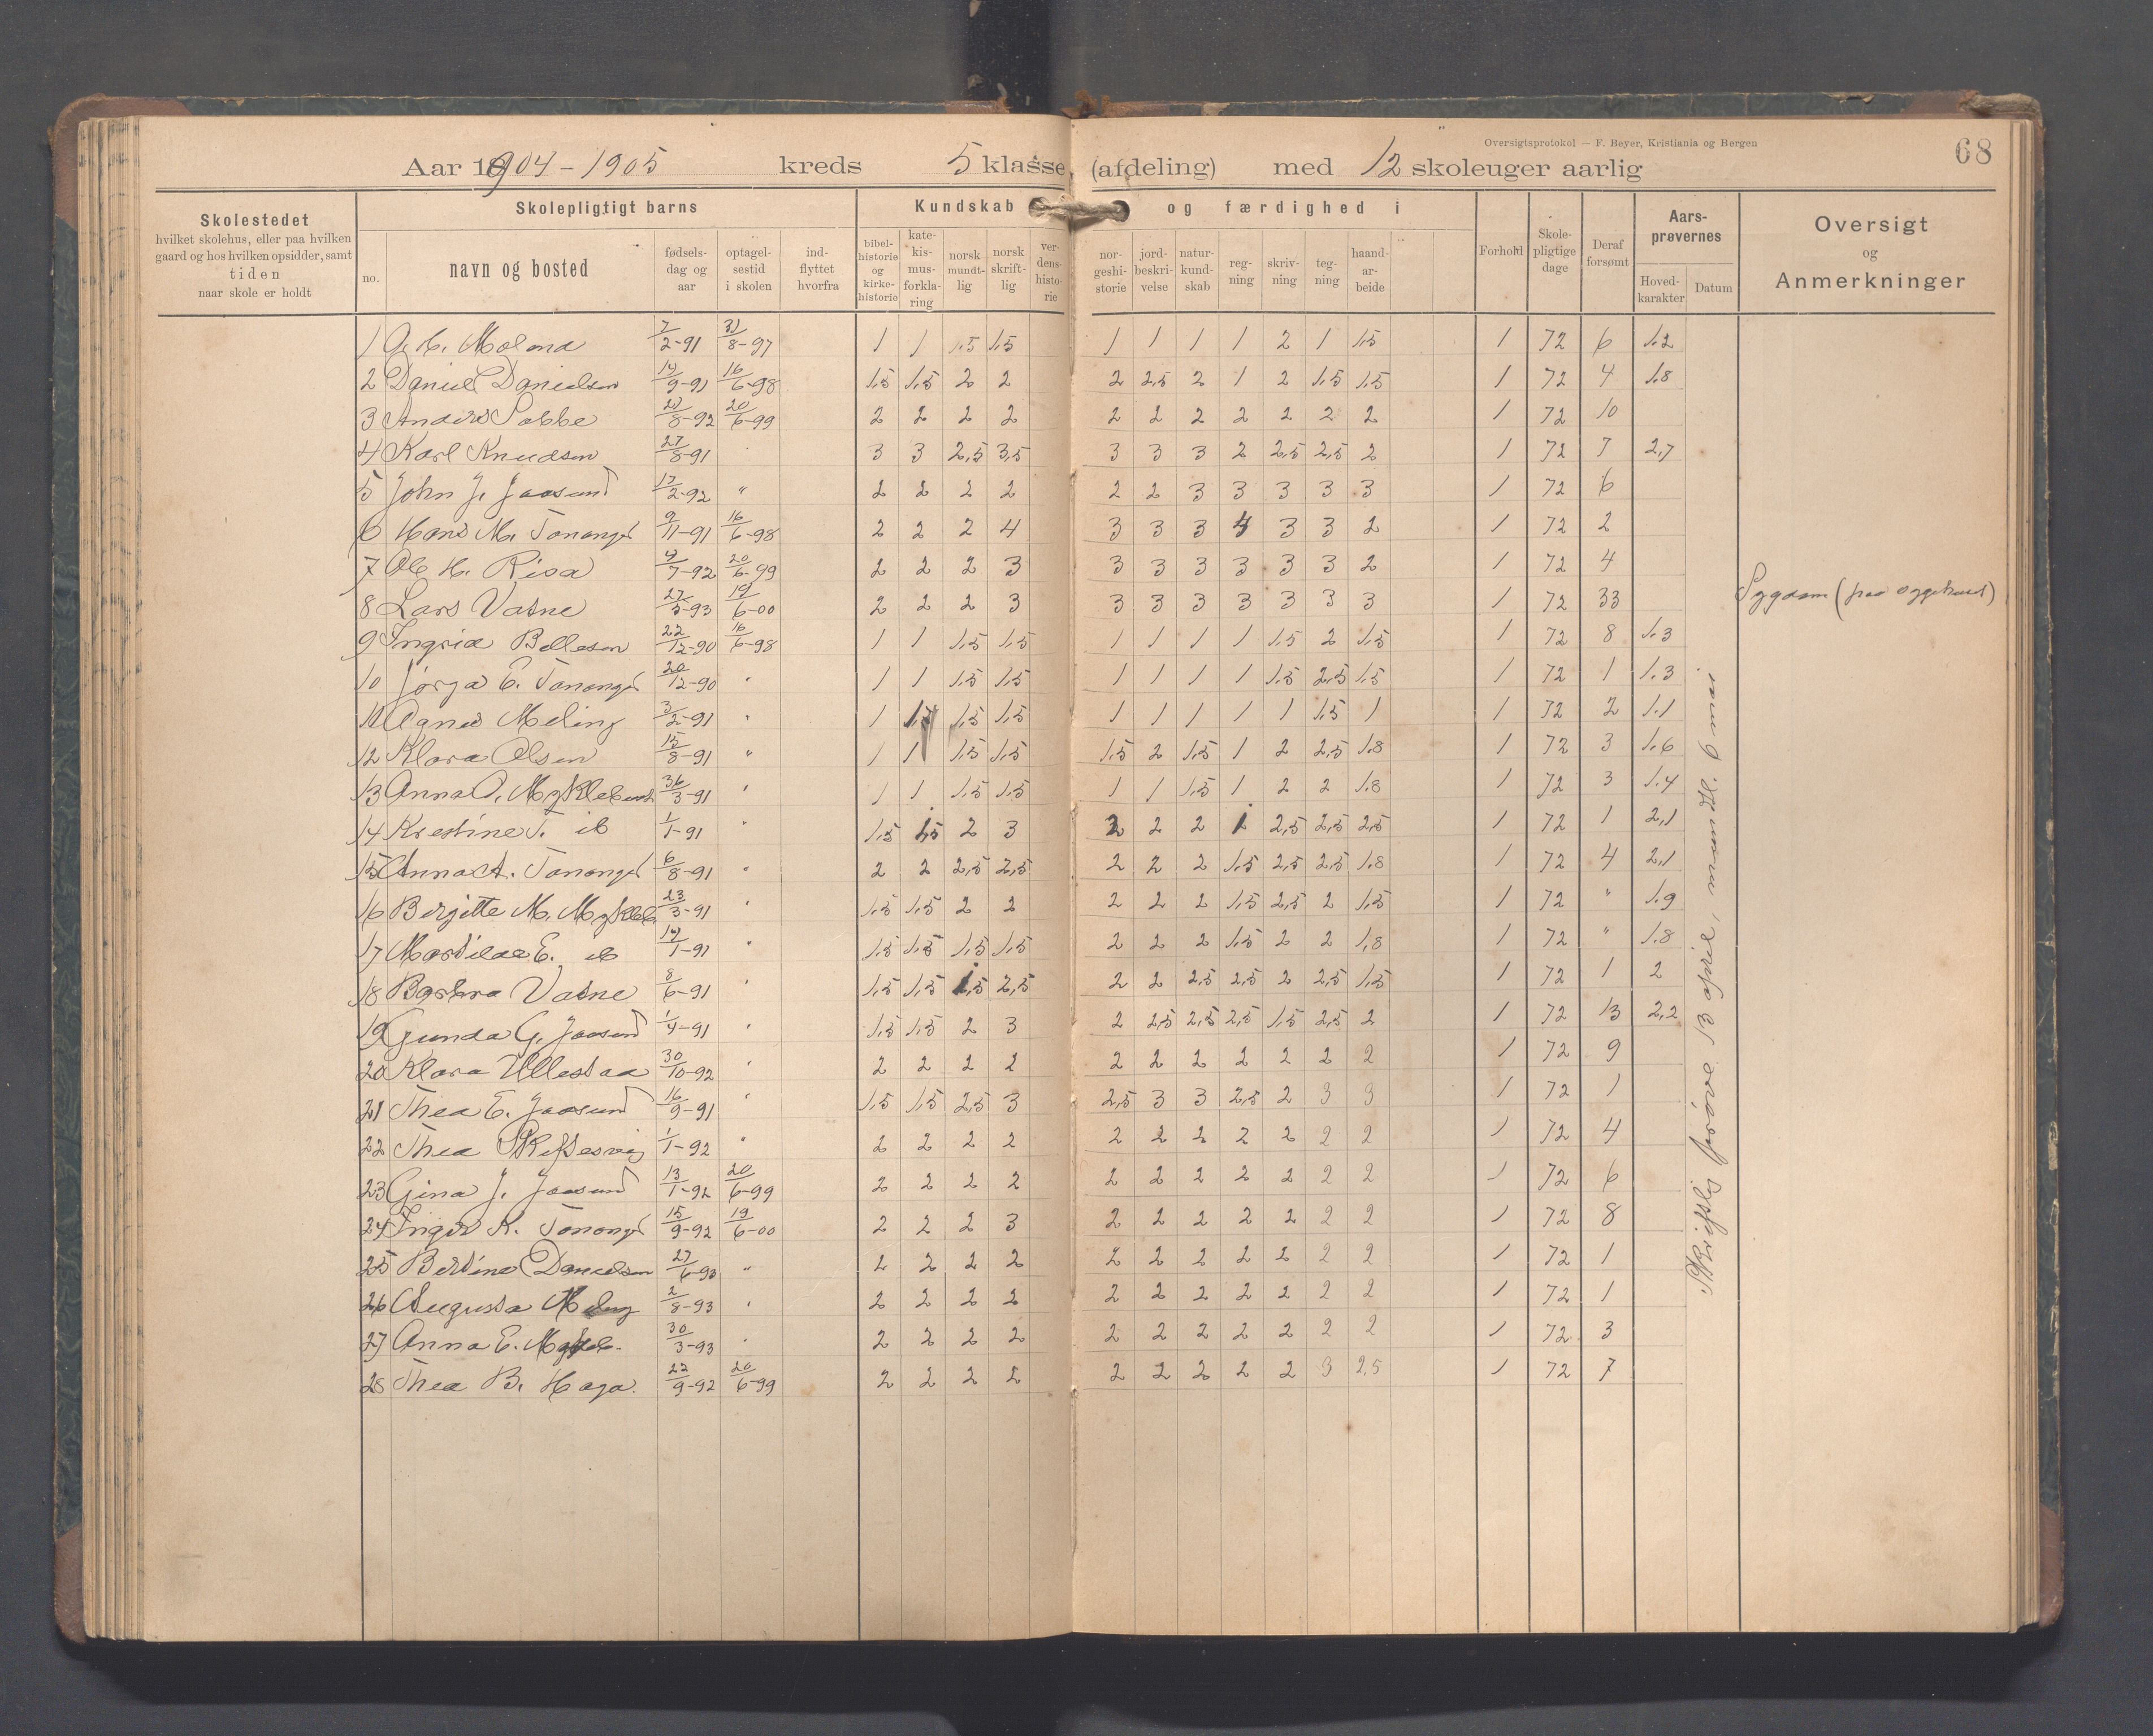 Oversigtsprotokol — F. Beyer, Kristiania og Bergen
68
Aar 1904 - 1905 kreds 5 klasse, (afdeling) med 12 skoleuger aarlig
Skolestedet
hvilket skolehus, eller paa hvilken
gaard og hos hvilken opsidder, samt
tiden
naar skole er holdt
Skolepligtigt barns
no.
navn og bosted
fødsels-
dag og
aar
optagel-
sestid
i skolen
ind-
flyttet
hvorfra
Kundskab og færdighed i
bibel-
historie
og
kirke-
historie
kate-
kis-
mus-
forkla-
ring
norsk
mundt-
lig
norsk
skrift-
lig
ver-
dens-
histo-
rie
nor-
geshi-
storie
jord-
beskri-
velse
natur-
kund-
skab
reg-
ning
skriv-
ning
teg-
ning
haand-
ar-
beide
Forhold
Skole-
pligtige
dage
Deraf
forsømt
Aars-
prøvernes
Hoved-
karakter
Datum
Oversigt
og
Anmerkninger
1 Moland 7/2-91 31/8-97 1 1 1.5 1.5 1 1 1 1 2 1 1.5 1 72 6 1.2
2 Daniel Danielsen 9-91 16/6-98 1.5 1.5 2 2 2 2.5 2 1 2 1.5 1.5 1 72 4 1.8
3 Anders 8-92 20/6-99 2 2 2 2 2 2 2 2 2 2 2 1 72 10
4 Karl Knudsen 27/8-91 3 3 2,5 3,5 3 3 3 2 2,5 2,5 2 1 72 7 2,7
5 John J. Jaasund 17/2-92 " 2 2 2 2 2 2 3 3 3 3 3 1 72 6
6 Hans M. Tananger 9/11-91 16/6-98 2 2 2 4 3 3 3 4 3 3 2 1 72 2
7 Ole H. Risa 7-92 20/6-99 2 2 2 3 3 3 3 3 3 3 2 1 72 4
8 Lars Vatne 27/5-93 19/6-00 2 2 2 3 3 3 3 3 3 3 3 1 72 33 Sygdom
9 Ingrid Bellesen 22/12-90 16/6-98 1 1 1.5 1.5 1 1 1 1 1.5 2 1.5 1 72 8 1.3
10 Jorga E. Tananger 20/12-90 " 1 1 1.5 1.5 1 1 1 1 1.5 2.5 1.5 1 72 1 1.3
11 Agnes Meling 3/2-91 " 1 1.5 1.5 1 1 1 1 1 1.5 1 1 72 2 1.1
12 Klara Olsen 15/8-91 " 1 1 1.5 1.5 1.5 2 1.5 1 2 2,5 1.8 1 72 3 1.6
13 Anna O. Myklebust 3-91 " 1 1 1.5 1.5 1 1 1.5 1 2 2 1.8 1 72 3 1.4
14 Krestine T. ib 1/1-91 " 1.5 1.5 2 3 2 2 2 2,5 2,5 2,5 1 72 1 2,1
15 Anna A. Tananger 6/8-91 " 2 2 2,5 2,5 2 2 2 1.5 2,5 2,5 1.8 1 72 4 2,1
16 Bergitte M. Mykleb. 23/3-91 " 1.5 1.5 2 2 2 2 2 1.5 2,5 2 1.5 1 72 " 1.9
17 E. ib 1-91 " 1.5 1.5 1.5 1.5 2 2 2 1.5 2 2 1.8 1 72 " 1.8
18 Barbra Vatne 8/6-91 " 1.5 1.5 2,5 2 2 2,5 2,5 2 2,5 1.5 1 72 1 2
19 Gunda G. Jaasund 1/4-91 " 1.5 1.5 2 3 2 2,5 2,5 2,5 1.5 2,5 2 1 72 13 2,2
20 Klara Ullestad 30/10-92 " 2 2 2 2 2 2 2 2 2 2 2 1 72 9
21 Thea E. Jaasund 16/9-91 " 1.5 1.5 2,5 3 2,5 3 3 2,5 2 3 3 1 72 1
22 Thea 1/1-92 " 2 2 2 2 2 2 2 2 2 2 2 1 72 4
23 Gina J. Jaasund 13/1-92 20/6-99 2 2 2 2 2 2 2 2 2 2 2 1 72 6
24 Inger K. Tananger 15/9-92 19/6-00 2 2 2 3 2 2 2 2 2 2 2 1 72 8
25 Bertine Danielsen 27/6-93 " 2 2 2 2 2 2 2 2 2 2 2 1 72 1
26 Augusta Meling 2/8-93 " 2 2 2 2 2 2 2 2 2 2 2 1 72 1
27 Anna E. Mykleb. 30/3-93 " 2 2 2 2 2 2 2 2 2 2 2 1 72 3
28 Thea B. Haga. 22/9-92 20/6-99 2 2 2 2 2 2 2 2 2 3 2,5 1 72 7
Skriftlig prøve 13 april, mundtl. 9 mai